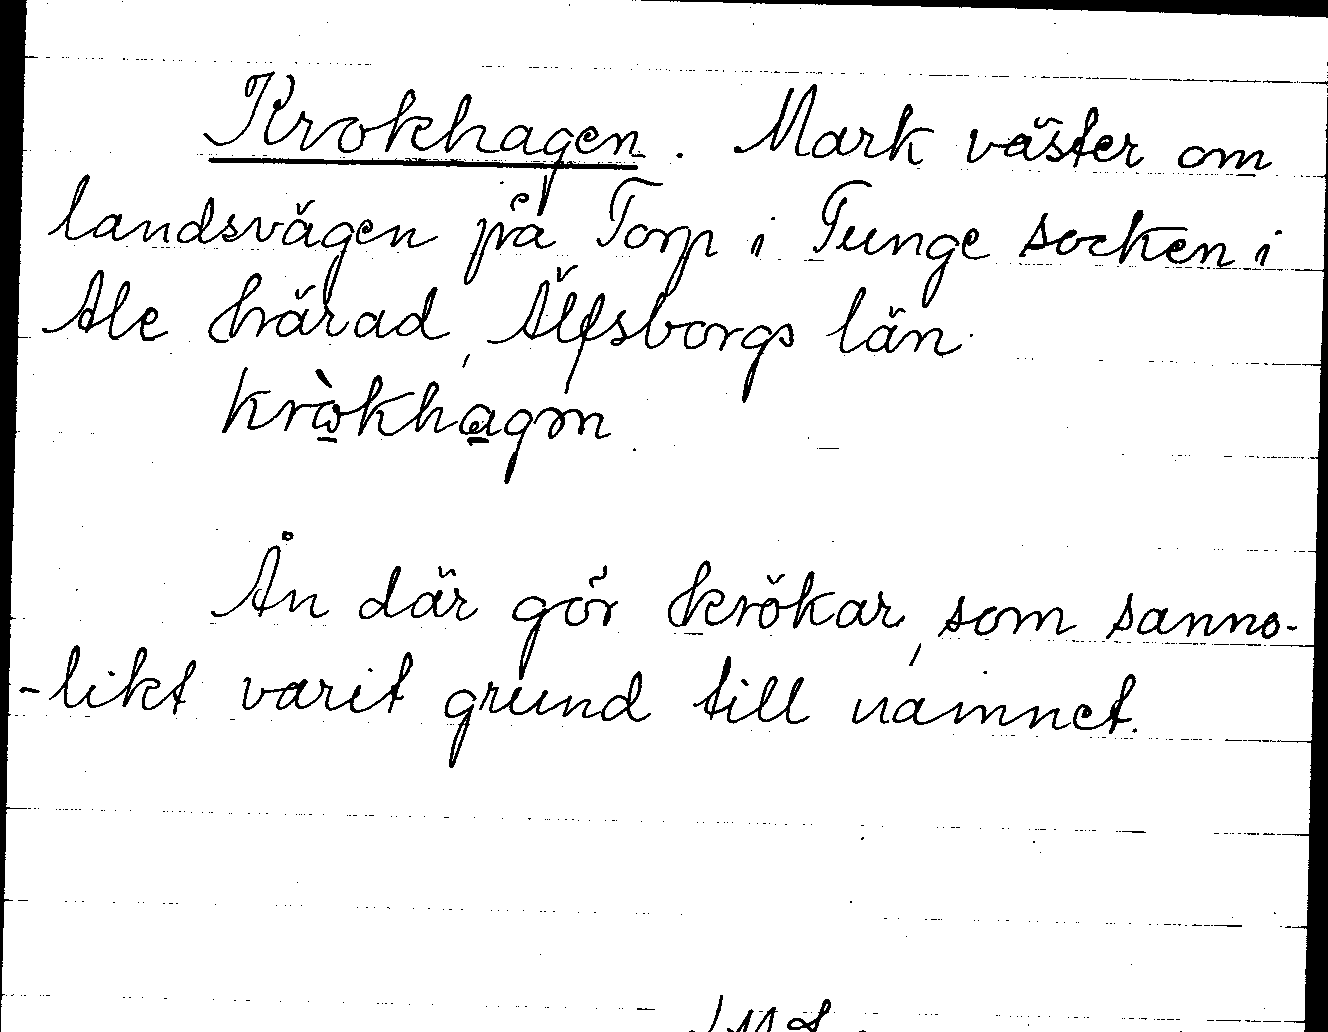 Krokhagen. Mark väster om
landsvägen på Torp i Tunge socken i
Ale härad, Älfsborgs län.
kròkhagən
Ån där gör krökar, som sanno-
-likt varit grund till namnet.